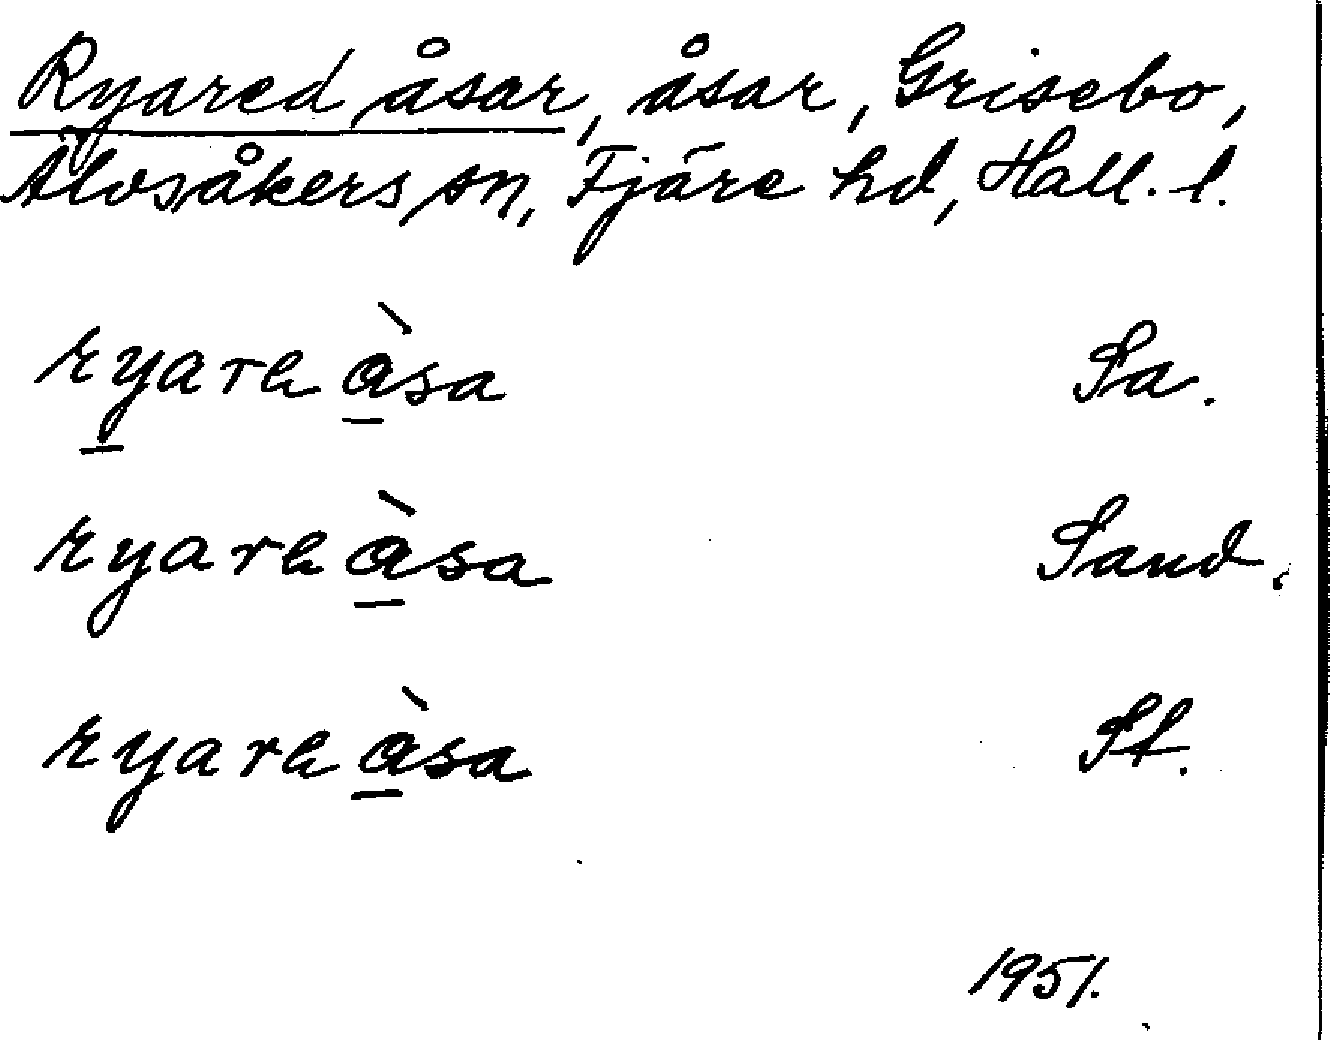 Ryared åsar, åsar, Grisebo,
Älvsåkers sn, Fjäre hd, Hall. l.
ryarɐ àsa Sa.
ryarɐ àsa Sand.
ryarɐ àsa St.
1951.